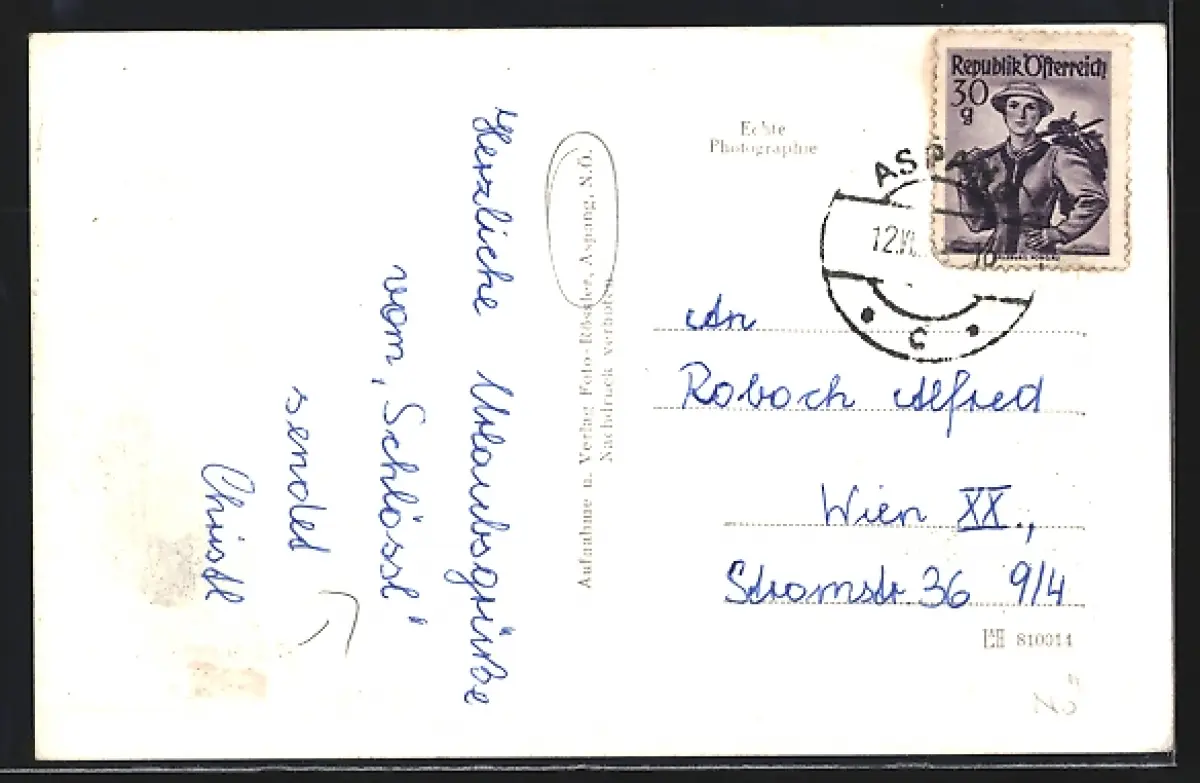 Herzliche Urlaubsgrüße
vom, Schlössl'
sendet
Christl
Aufnahme u. Verlag Foto-Rössler, Aspang, N.Ö.
Nachdruck verboten
Echte
Photographie
Republik Österreich
30
g
ASPANG
12.VI.
C
An
Roboch Alfred
Wien XX.,
Stromstr. 36 9/4
810014